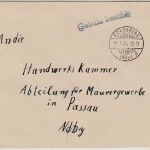 Gebühr bezahlt
An die
Handwerks Kammer
Abteilung für Maurergewerbe
in Passau
Ndby